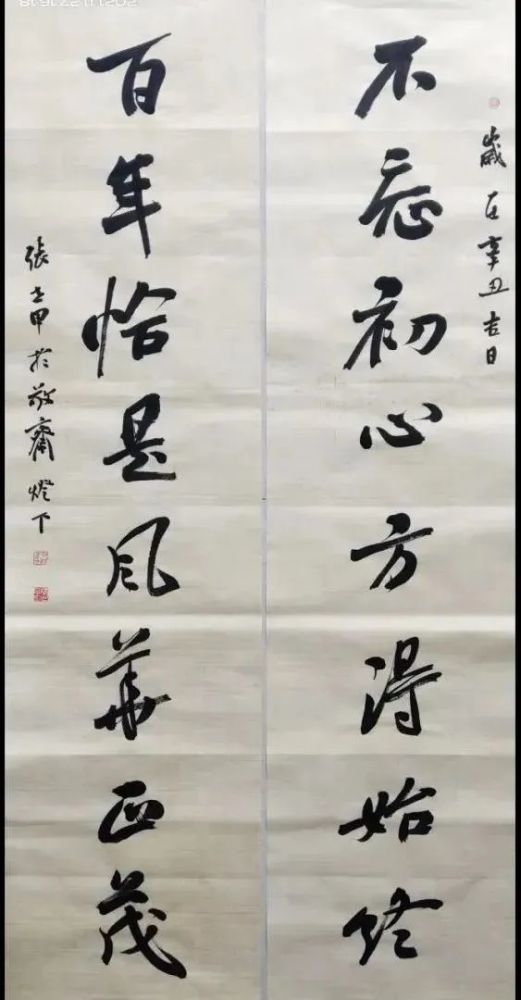 歲在辛丑吉日
不忘初心方得始終
百年恰是風華正茂
張士甲於敬齋燈下